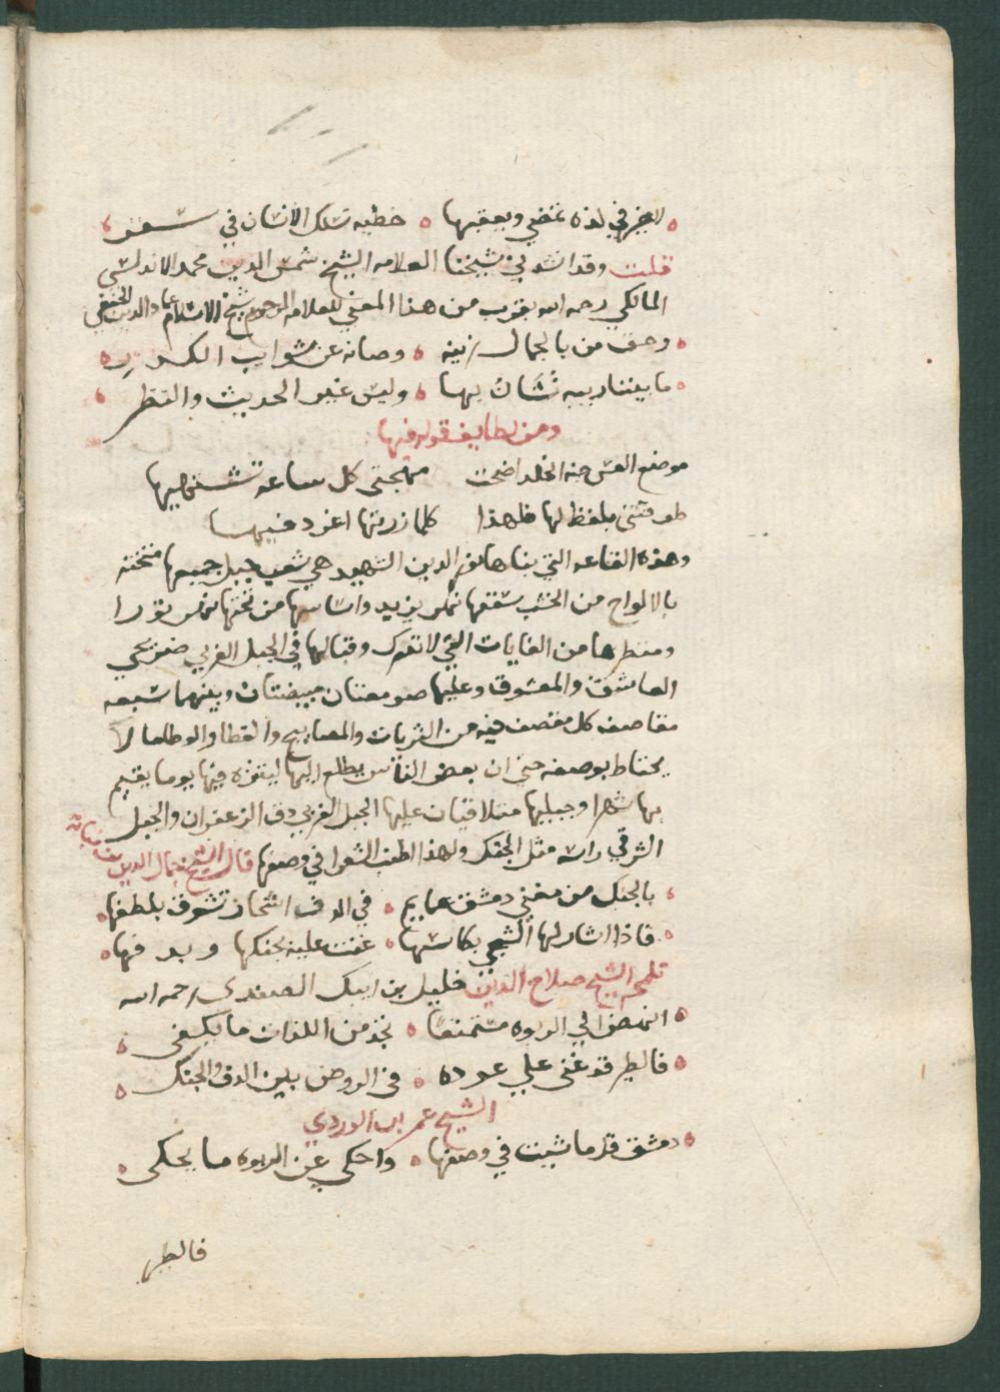 لاخير في لذه تمضي ويعقبها ه خطيه تسلك الانسان في سقر
قلت وقد انشدني شيخنا العلامه الشيخ شمس الدين محمد الاندلسي
المالكي رحمه الله بقرب من هذا المعني للعلامه المرحوم شيخ الاسلام عماد الدين الحنفي
وحق من بالجمال زينه ه وصانه عن شوايب الكدر
ما بيننا ريبه نشان بها ه وليس غير الحديث والنظر
ومن لطايف قوله فيها
موضع الغض جنة الخلد اضحت مهجتي كل ساعة تشتهيها
طوقتني بلفظ لها فلهذا كلما زرتها اغرد فيها
وهذه القاعه التي بناها نور الدين الشهيد هي شعب جبل جميعها متختته
بالالواح من الخشب سقفها نهر يزيد واساسها من تحتها نهر تورا
ومنظرها من الغايات التي لا تدرك وقبالها في الجبل الغربي ضريحي
العاشق والمعشوق وعليها صومعتان مبيضتان وبينهما سبعه
مقاصف كل مقصف فيه من الثريات والمصابيح والقطا والوطا ما لا
يحتاط بوصفه حتي ان بعض الناس يطلع اليها ليتنزه فيها يوما يقيم
بها شهرا وجبليها متلاقيان عليها الجبل الغربي دف الزعفران والجبل
الشرقي راسه مثل الجنك ولهذا اطنب الشعرا في وصفها قال الشيخ جمال الدين بن نباته
بالجنك من مغني دمشق حمايم ه في الدف اشجار تشوق بلطفها
فاذا اشار لها الشجي بكاسها ه غنت عليه بجنكها وبدفها
تلمحه الشيخ صلاح الدين خليل بن ايبك الصفدي رحمه الله
انهض الي الربوه مستمتعا ه تجد من اللذات ما يكفي
فالطير قد غنى علي عوده ه في الروض بين الدف والجنك
الشيخ عمر ابن الوردي
دمشق قل ما شيت في وصفها ه واحكي عن الربوه ما يحكى
فالطير